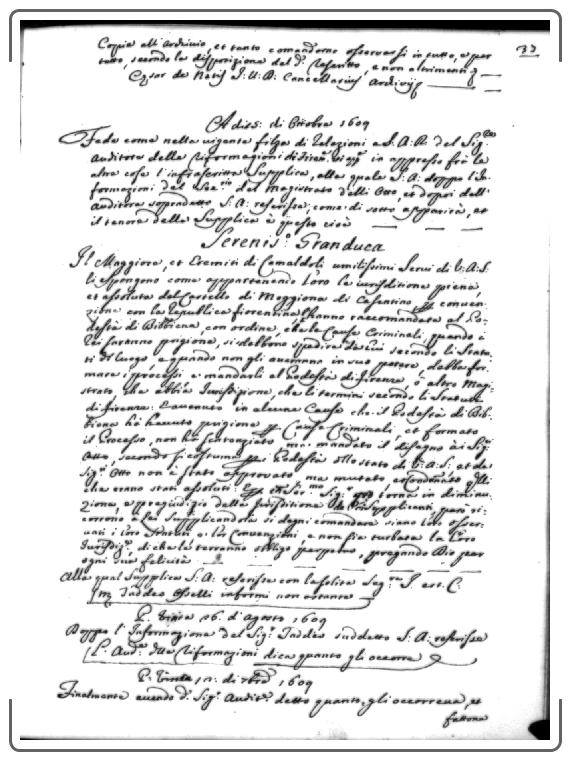 Copia all'Archivio, et tanto comandorno osservarsi in tutto, e per
tutto, secondo la disposizione del d.º Rescritto, e non altrimenti
Cesar de Natis I.U.D. Cancellarius Archivij
33
A dies: di Ottobre 1609
Fede come nella vigente filza di Relazioni a S.A.R. del Sig.re
Auditore delle Riformagioni di in appresso frà le
altre cose l'infrascritta Supplica, alla quale S.A. doppo l'in-
formazioni del Seg.rio del Magistrato delli Otto, et dopoi dell'
Auditore sopradetto S.A. rescrisse, come di sotto apparirà, et
il tenore della Supplica è questo cioè
Serenis.º Granduca
Il Maggiore, et Eremiti di Camaldoli umilissimi Servi di V.A.S.
li espongono come appartenendo a loro la iurisditione piena,
et assoluta del Castello di Moggiona di Casentino per conven-
zione con la Republica fiorentina l'hanno raccomandata al Po-
destà di Bibbiena, con ordine, che le Cause Criminali, quando i
rei saranno prigione, si debbono spedire da lui secondo li Statu-
ti di luogo, e quando non gli averanno in suo potere, debba for-
mare i processi, e mandoli al Podestà di firenze, ò altro Magi-
strato che abbia Iurisdizione, che li termini secondo li Statuti
di firenze. È avenuto in alcune Cause che il Podestà di Bib-
biena hà havuto prigione per Cause Criminali, et formato
il Processo, non hà sentenziato ma mandato il disegno ai Sig.ri
Otto, secondo si costuma per i Podestà dello stato di V.A.S. et da
Sig.ri Otto non è stato approvato ma mutato, e condonato quelli
che erano stati assoluti: Sig. torna in diminu-
zione, e pregiudizio della Iurisditione de Supplicanti, però ri-
corrono à lei Supplicandola si degni comandare siano loro osser-
vati i loro Statuti e le Convenzioni, e non sia turbata la loro
Iurisdiz.e, di che le terranno obligo perpetuo, pregando Dio per
ogni sua felicità
Alla qual Supplica S.A. rescrisse con la solita Seg.ra I. est. C.
M. Taddeo Oselli informi non ostante
P. Vinta 26. d'Agosto 1609
Doppo l'Informazione del Sig.r Taddeo suddetto S.A. rescrisse
L'Aud.re delle Riformagioni dica quanto gli occorre
P. Vinta 12. di 7bre 1609
Finalmente avendo d.º Sig.r Audit.re detto quanto gli occorreva, et
fattone